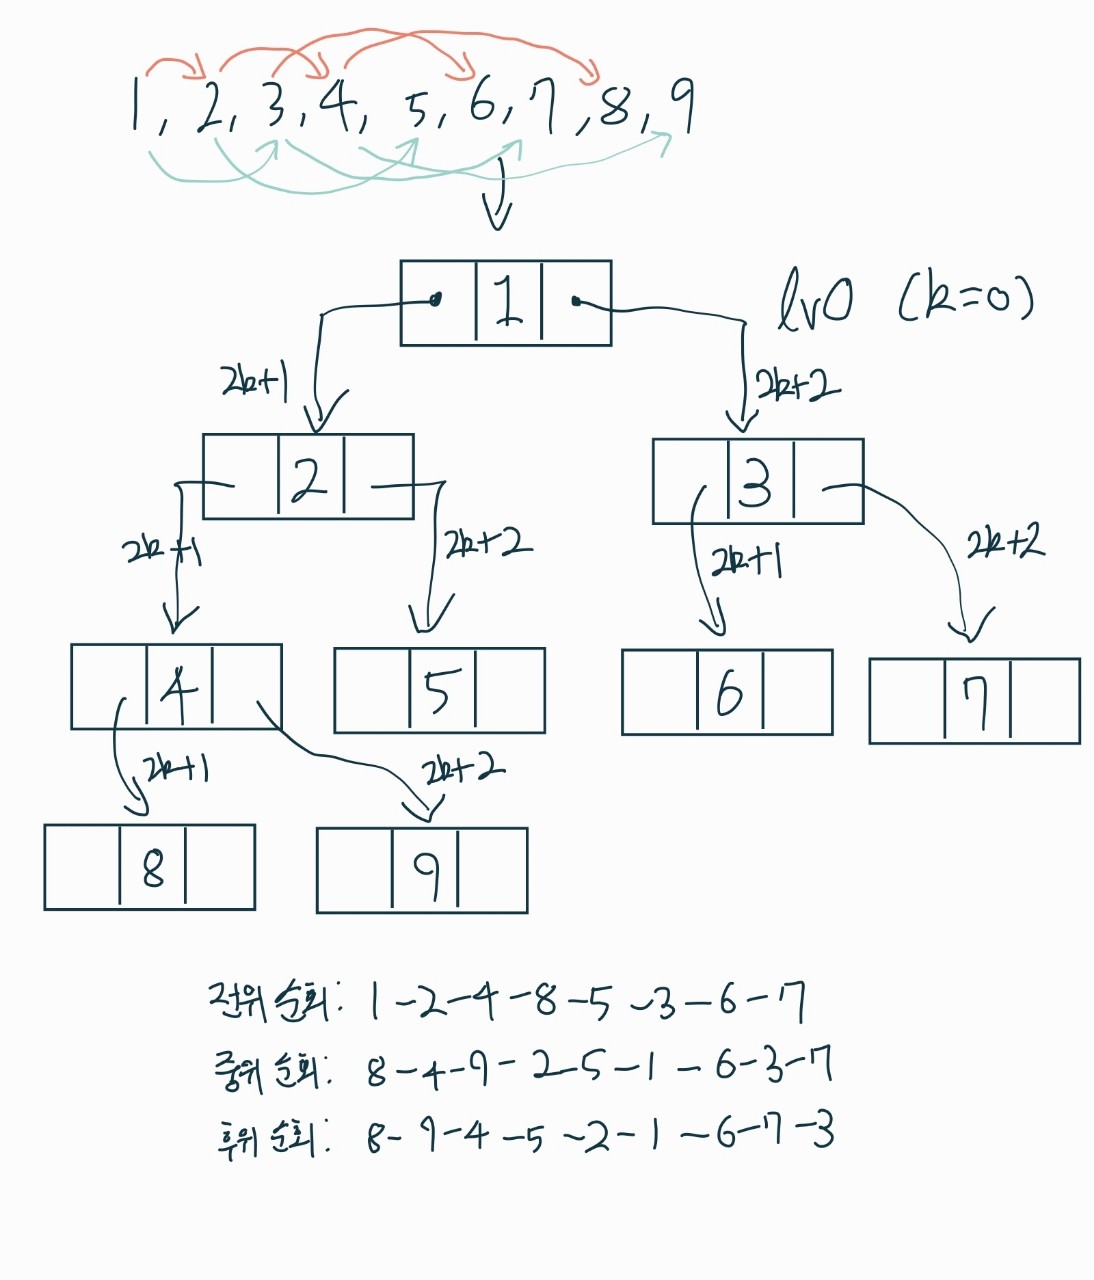 1, 2, 3, 4, 5, 6, 7, 8, 9
1
lv0 (k=0)
2k+1
2k+2
2
3
2k+1
2k+2
2k+1
2k+2
4
5
6
7
2k+1
2k+2
8
9
전위 순회: 1-2-4-8-5-3-6-7
중위 순회: 8-4-9-2-5-1-6-3-7
후위 순회: 8-9-4-5-2-1-6-7-3